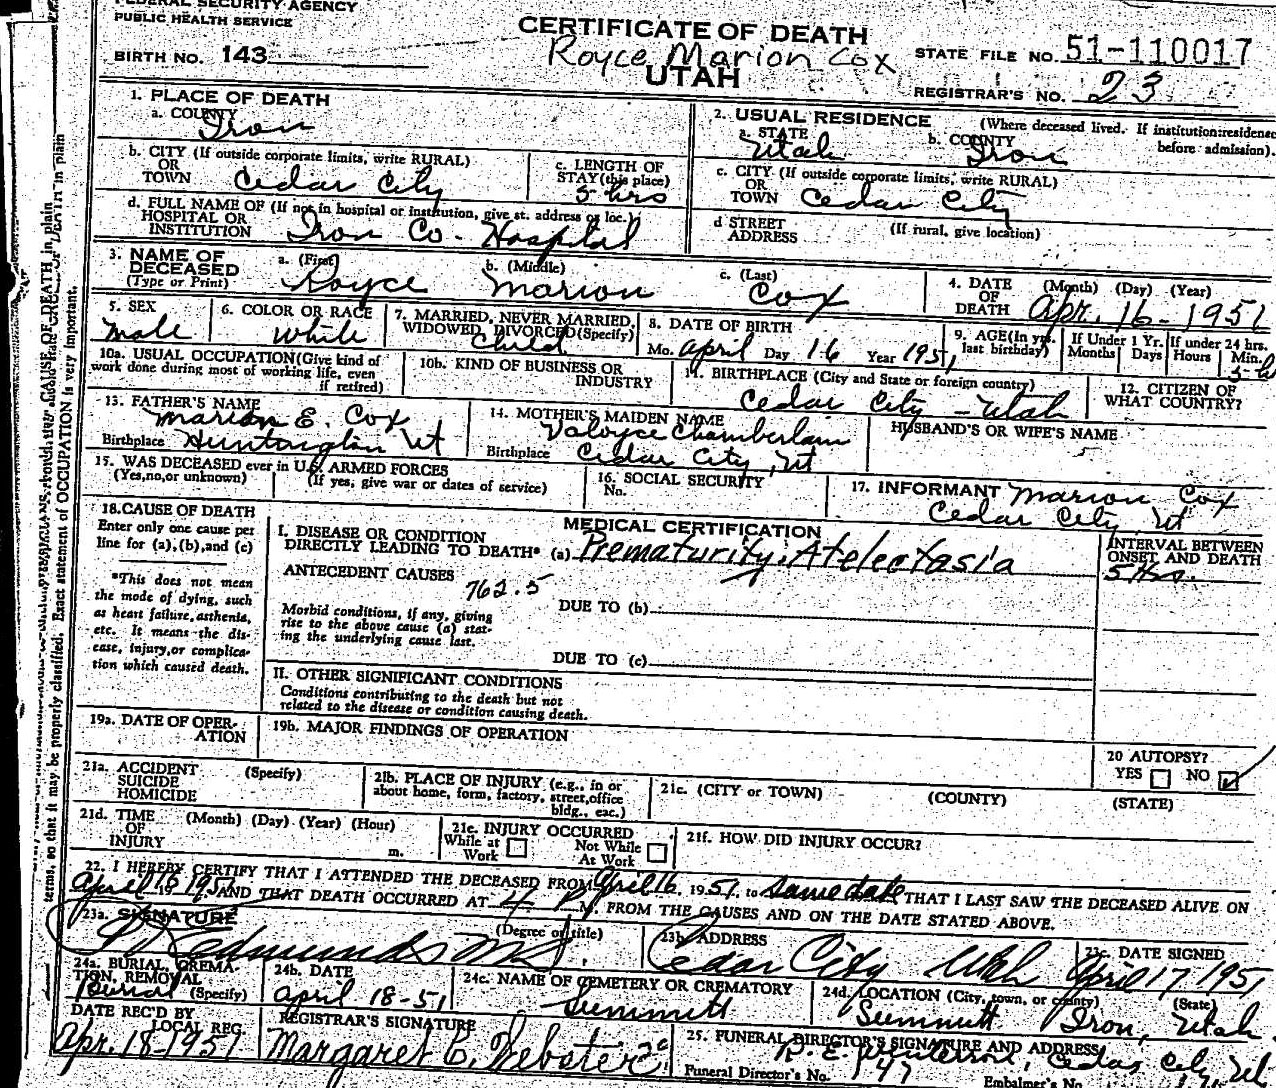 FEDERAL SECURITY AGENCY
PUBLIC HEALTH SERVICE
CERTIFICATE OF DEATH
Royce Marion Cox
UTAH
BIRTH NO. 143
STATE FILE NO. 51-110017
REGISTRAR'S NO. 23
1. PLACE OF DEATH
a. COUNTY
Iron
2. USUAL RESIDENCE (Where deceased lived. If institution: residence before admission).
a. STATE Utah b. COUNTY Iron
b. CITY (If outside corporate limits, write RURAL)
OR
TOWN Cedar City
c. LENGTH OF
STAY (this place)
5 hrs
c. CITY (If outside corporate limits, write RURAL)
OR
TOWN Cedar City
d. FULL NAME OF (If not in hospital or institution, give st. address or loc.)
HOSPITAL OR
INSTITUTION Iron Co. Hospital
d STREET (If rural, give location)
ADDRESS
3. NAME OF
DECEASED
(Type or Print)
a. (First) b. (Middle) c. (Last)
Royce Marion Cox
4. DATE (Month) (Day) (Year)
OF
DEATH Apr. 16-1951
5. SEX
male
6. COLOR OR RACE
white
7. MARRIED, NEVER MARRIED,
WIDOWED, DIVORCED (Specify)
Child
8. DATE OF BIRTH
Mo. April Day 16 Year 1951
9. AGE (In yrs.
last birthday)
If Under 1 Yr. If under 24 hrs.
Months Days Hours Min.
10a. USUAL OCCUPATION (Give kind of
work done during most of working life, even
if retired)
10b. KIND OF BUSINESS OR
INDUSTRY
11. BIRTHPLACE (City and State or foreign country)
Cedar City - Utah
12. CITIZEN OF
WHAT COUNTRY?
13. FATHER'S NAME
Marion E. Cox
Birthplace Huntington Ut
14. MOTHER'S MAIDEN NAME
Valoyce Chamberlain
Birthplace Cedar City, Ut
HUSBAND'S OR WIFE'S NAME
15. WAS DECEASED ever in U.S. ARMED FORCES
(Yes, no, or unknown) (If yes, give war or dates of service)
16. SOCIAL SECURITY
No.
17. INFORMANT Marion Cox
Cedar City, Ut
18. CAUSE OF DEATH
Enter only one cause per
line for (a), (b), and (c)
*This does not mean
the mode of dying, such
as heart failure, asthenia,
etc. It means the dis-
ease, injury, or complica-
tion which caused death.
MEDICAL CERTIFICATION
I. DISEASE OR CONDITION
DIRECTLY LEADING TO DEATH* (a) Prematurity, Atelectasia
INTERVAL BETWEEN
ONSET AND DEATH
5 Hrs.
ANTECEDENT CAUSES
762.5
Morbid conditions, if any, giving
rise to the above cause (a) stat-
ing the underlying cause last.
DUE TO (b)
DUE TO (c)
II. OTHER SIGNIFICANT CONDITIONS
Conditions contributing to the death but not
related to the disease or condition causing death.
19a. DATE OF OPER-
ATION
19b. MAJOR FINDINGS OF OPERATION
20 AUTOPSY?
YES NO
21a. ACCIDENT (Specify)
SUICIDE
HOMICIDE
21b. PLACE OF INJURY (e.g., in or
about home, form, factory, street, office
bldg., eac.)
21c. (CITY or TOWN) (COUNTY) (STATE)
21d. TIME (Month) (Day) (Year) (Hour)
OF
INJURY m.
21e. INJURY OCCURRED
While at Not While
Work At Work
21f. HOW DID INJURY OCCUR?
22. I HEREBY CERTIFY THAT I ATTENDED THE DECEASED FROM April 16, 1951, to same date THAT I LAST SAW THE DECEASED ALIVE ON
April 16 1951, AND THAT DEATH OCCURRED AT 4 P M. FROM THE CAUSES AND ON THE DATE STATED ABOVE.
23a. SIGNATURE (Degree or title)
Edmunds MD.
23b. ADDRESS
Cedar City Utah
23c. DATE SIGNED
April 17 1951
24a. BURIAL, CREMA-
TION, REMOVAL
Burial (Specify)
24b. DATE
April 18-51
24c. NAME OF CEMETERY OR CREMATORY
Summitt
24d. LOCATION (City, town, or county) (State)
Summitt Iron, Utah
DATE REC'D BY
LOCAL REG.
Apr. 18-1951
REGISTRAR'S SIGNATURE
Margaret C. Webster
25. FUNERAL DIRECTOR'S SIGNATURE AND ADDRESS
Cedar City, Ut
Funeral Director's No. 147 Embalmer's No.
terms, so that it may be properly classified. Exact statement of OCCUPATION is very important.